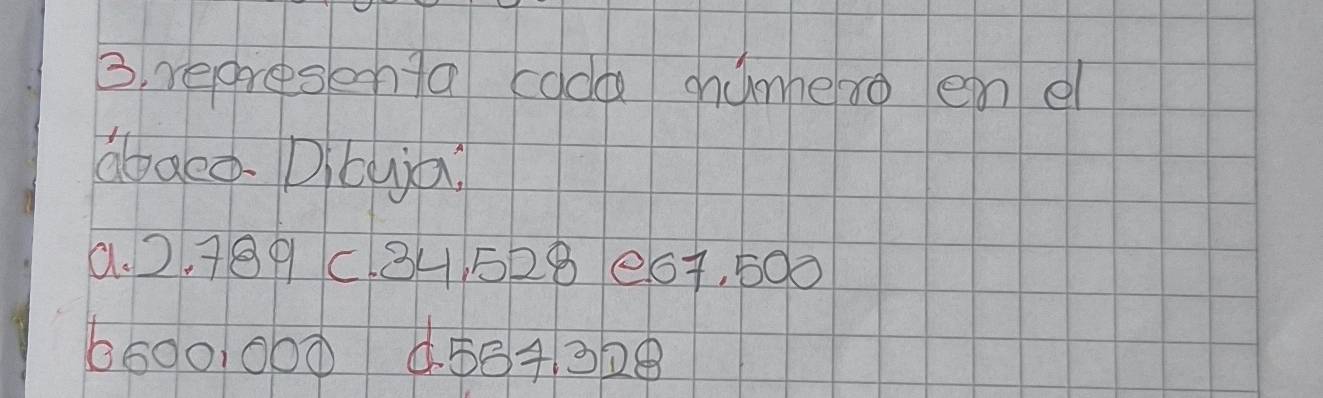 3. representa cada número en el
ábaco. Dibuja:
a. 2.789 c. 34,528 e 67.500
b 600,000 d. 567.328